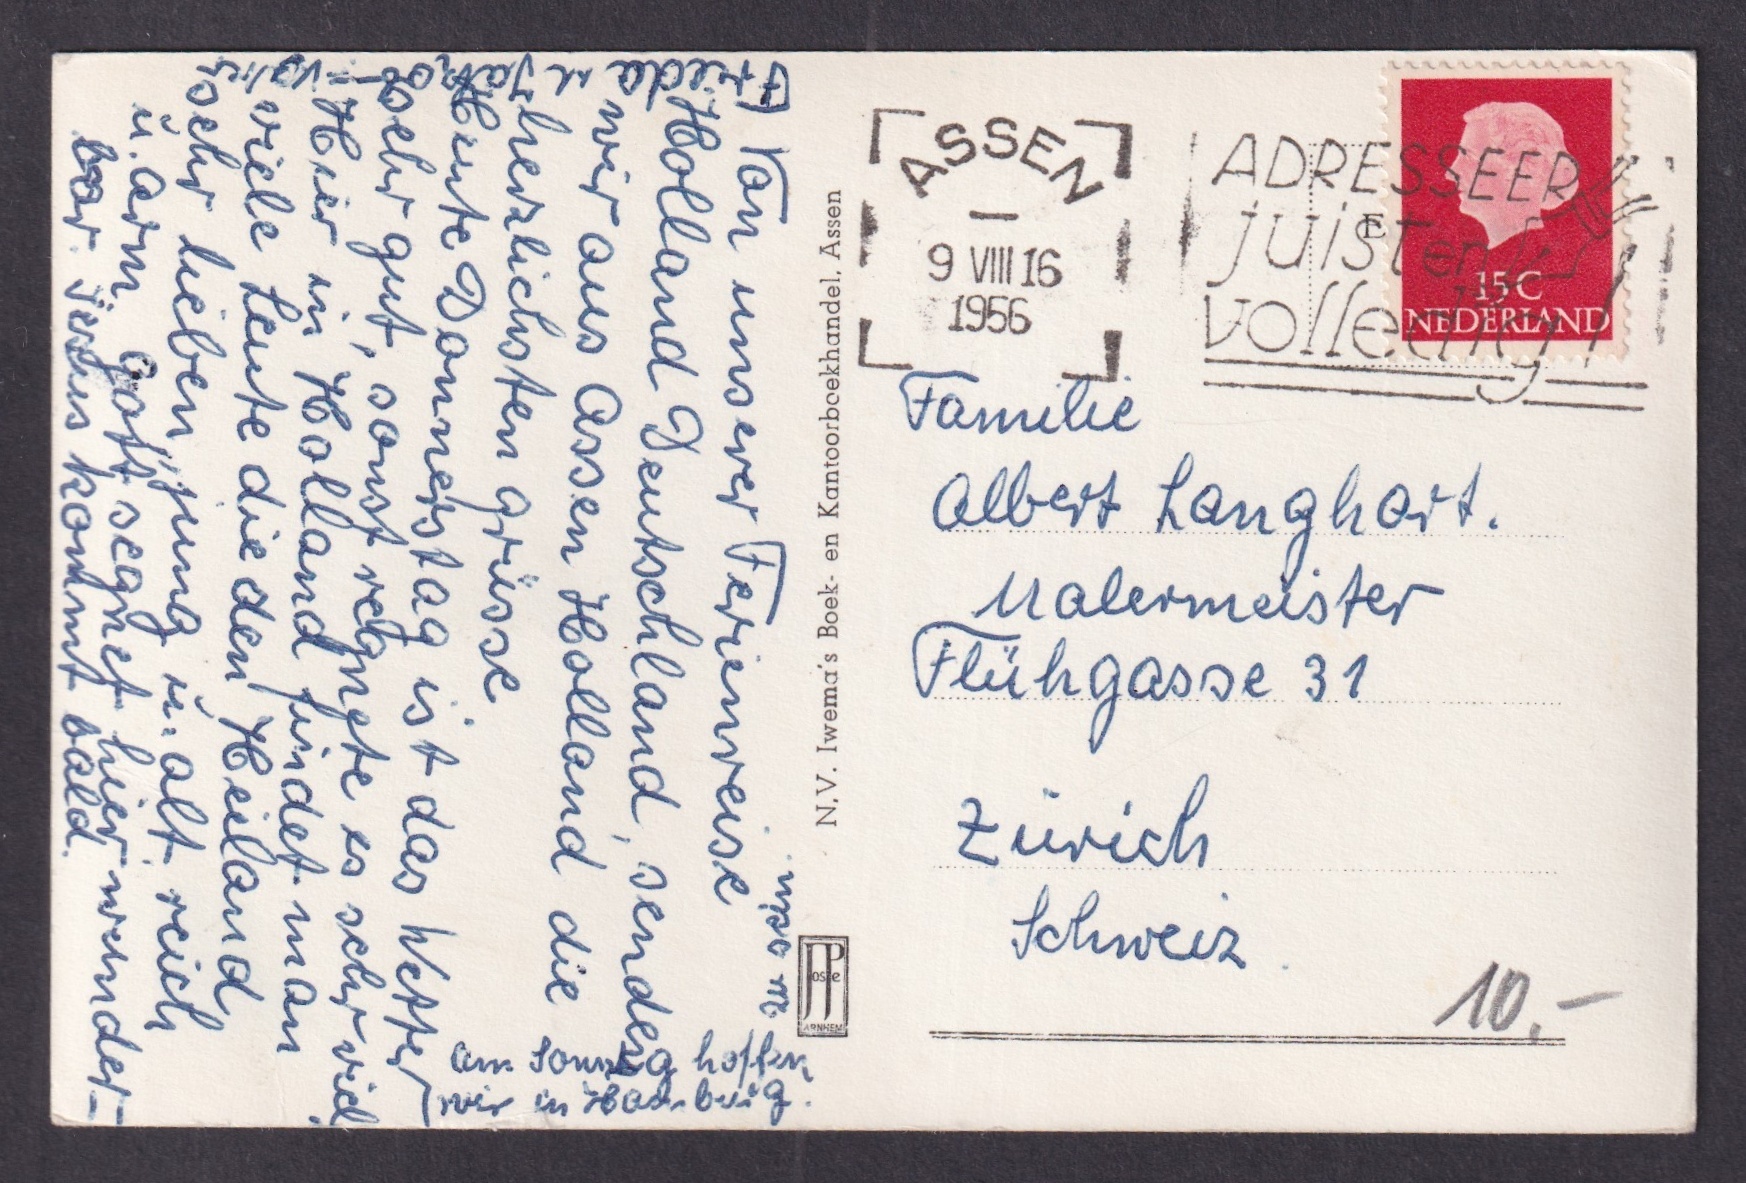 Von unserer Ferienreise
Holland Deutschland, senden
wir aus Assen Holland die
herzlichsten Grüsse
Heute Donnerstag ist das Wetter
sehr gut, sonst regnete es sehr viel
Hier in Holland findet man
viele Leute die den Heiland
sehr lieben jung u. alt reich
u. arm. Gott segnet hier wunder-
bar. Jesus kommt bald.
am Sonntag hoffen
wir in Hamburg.
zu sein.
Frieda u. Jakob
N.V. Iwema's Boek- en Kantoorboekhandel, Assen
JP
oste
ARNHEM
ASSEN
9 VIII 16
1956
ADRESSEER
juist en
volledig!
15 C
NEDERLAND
Familie
Albert Langhart.
Malermeister
Flühgasse 31
Zürich
Schweiz.
10.-